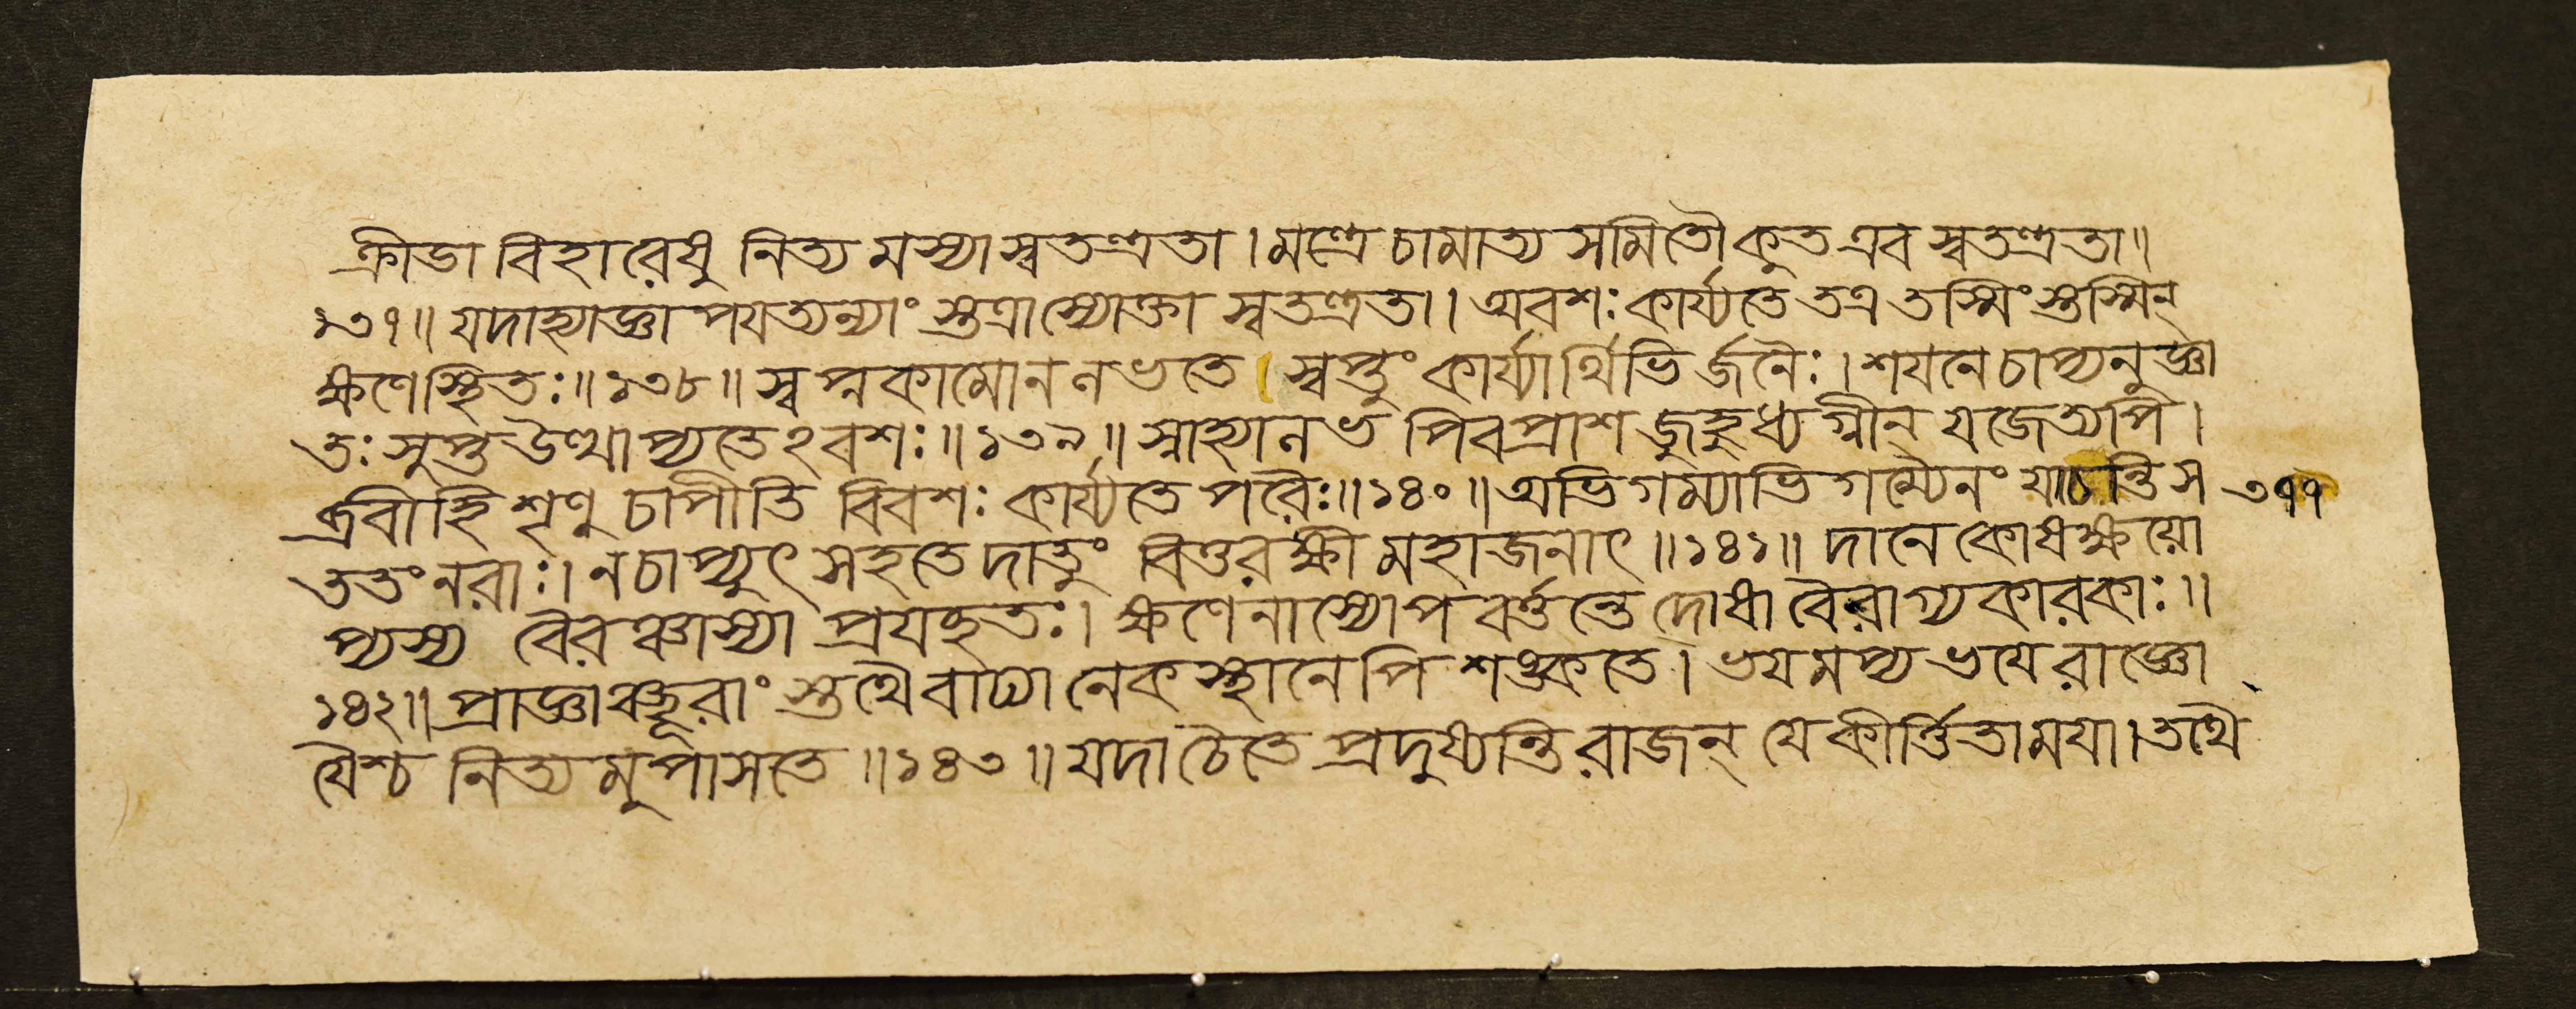 ক্রীডা বিহারেষু নিত্য মস্যাস্বতন্ত্রতা । মন্ত্রে চামাত্য সমিতৌ কুত এব স্বতন্ত্রতা ॥
১৩৭ ॥ যদাহ্যাজ্ঞা পযত্যন্যাং স্তত্রাস্যোক্তা স্বতন্ত্রতা । অবশঃ কার্য্যতে তত্র তস্মিং স্তস্মিন্
ক্ষণেস্থিতঃ ॥ ১৩৮ ॥ স্বপ্নকামোননভতে । স্বপ্তুং কার্য্যার্থিভির্জনৈঃ । শযনেচাপ্যনুজ্ঞা
তঃ সুপ্তউত্থাপ্যতেঽবশঃ ॥ ১৩৯ ॥ স্নাহ্যানভ পিবপ্রাশ জুহুধ্যগ্নীন্ যজেত্যপি ।
ব্রবীহি শৃণু চাপীতি বিবশঃ কার্য্যতে পরৈঃ ॥ ১৪০ ॥ অভিগম্যাভিগম্যৈনং যাচন্তিস ৩৭৭
ততংনরাঃ । নচাপ্যুৎ সহতেদাতুং বিত্তরক্ষী মহাজনাৎ ॥ ১৪১ ॥ দানে কোষক্ষয়ো
প্যস্য বৈরঞ্চাস্যা প্রযচ্ছতঃ । ক্ষণেনাস্যোপবর্ত্তন্তে দোষা বৈরাগ্যকারকাঃ ॥
১৪২ ॥ প্রাজ্ঞাঞ্ছূরাং স্তথৈবাঢ্যানেকস্থানেপি শঙ্কতে । ভযমপ্যভযে রাজ্ঞো
যৈশ্চ নিত্যমুপাসতে ॥ ১৪৩ ॥ যদাচৈতে প্রদুষ্যন্তি রাজন্ যেকীর্ত্তিতামযা । তথৈ